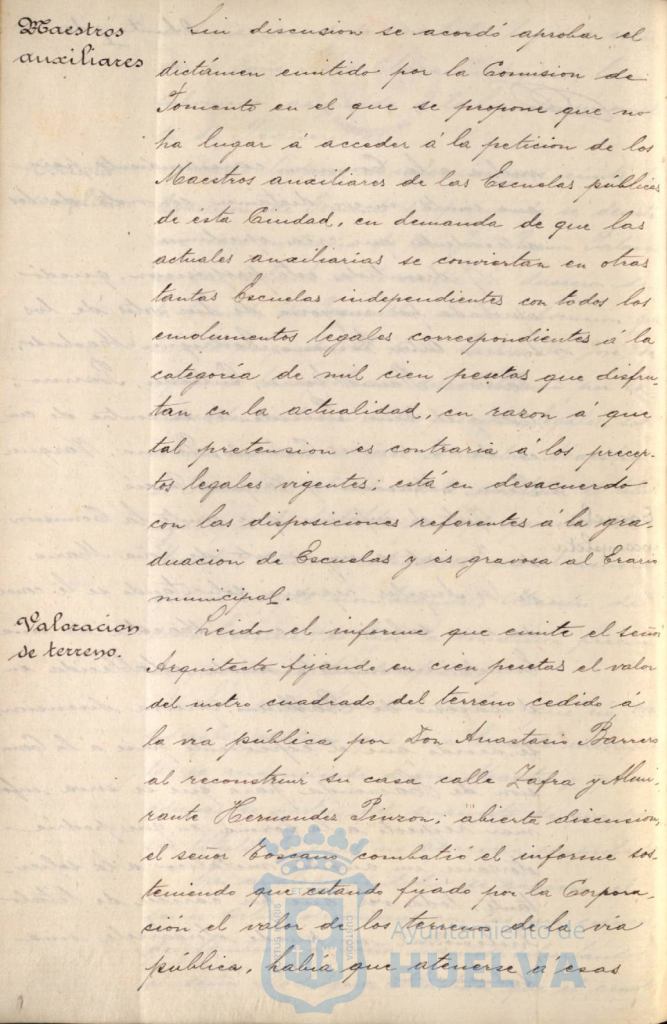 Maestros
auxiliares
Sin discusion se acordó aprobar el
dictámen emitido por la Comision de
Fomento en el que se propone que no
ha lugar á acceder á la peticion de los
Maestros auxiliares de las Escuelas públicas
de esta Ciudad, en demanda de que las
actuales auxiliarias se conviertan en otras
tantas Escuelas independientes con todos los
emolumentos legales correspondientes á la
categoría de mil cien pesetas que disfru-
tan en la actualidad, en razon á que
tal pretension es contraria á los precep-
tos legales vigentes; está en desacuerdo
con las disposiciones referentes á la gra-
duacion de Escuelas y es gravosa al Erario
municipal.
Valoracion
de terreno.
Leido el informe que emite el señor
Arquitecto fijando en cien pesetas el valor
del metro cuadrado del terreno cedido á
la vía pública por Don Anastasio Barrero
al reconstruir su casa calle Zafra y Almi-
rante Hernandez Pinzon; abierta discusion,
el señor Toscano combatió el informe sos-
teniendo que estando fijado por la Corpora-
sión el valor de los terrenos de la vía
pública, había que atenerse á esas
Ayuntamiento de
HUELVA